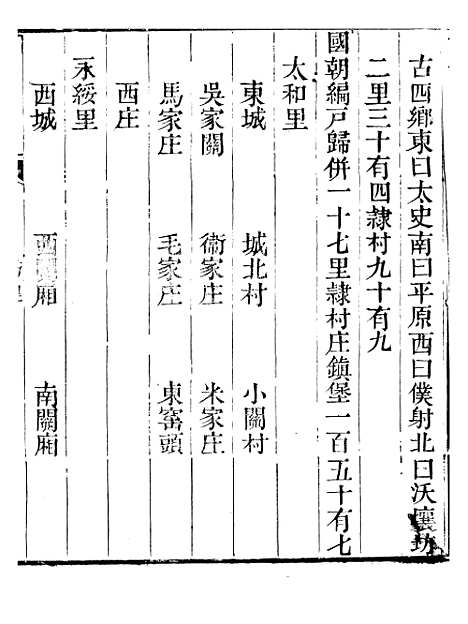 古四鄉東曰太史南曰平原西曰僕射北曰沃壤坊
二里三十有四隸村九十有九
國朝編戸歸併一十七里隸村庄鎮堡一百五十有七
太和里
東城 城北村 小關村
吳家關 衞家庄 米家庄
馬家庄 毛家庄 東窑頭
西庄
永綏里
西城 西關廂 南關廂